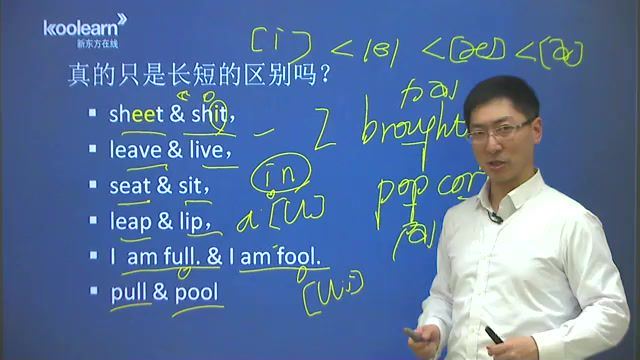 koolearn
新东方在线
[i] < /e/ < [æ] <
真的只是长短的区别吗?
▪ sheet & shit,
▪ leave & live,
▪ seat & sit,
▪ leap & lip,
▪ I am full. & I am fool.
▪ pull & pool
brought
in
pop corn